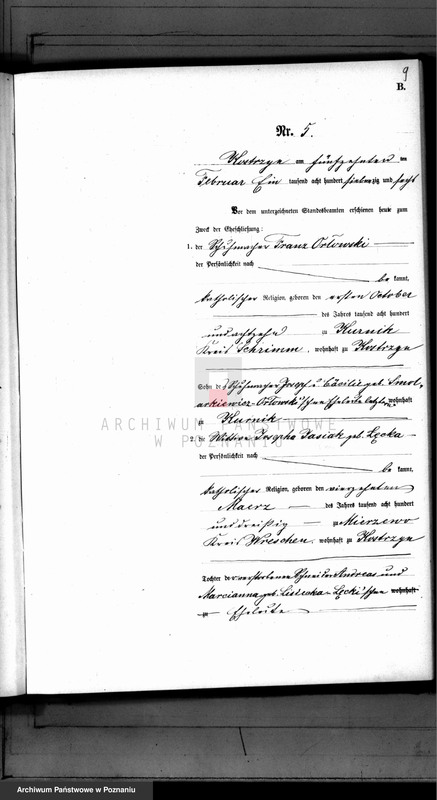 9
B.
Nr. 5.
Kostrzyn am fünfzehnten ten
Februar Ein tausend acht hundert siebenzig und sechs
Vor dem unterzeichneten Standesbeamten erschienen heute zum
Zweck der Eheschließung:
1. der Schuhmacher Franz Orlowski
der Persönlichkeit nach
be kannt,
katholischer Religion, geboren den ersten October
des Jahres tausend acht hundert
und achtzehn zu Kurnik
Kreis Schrimm, wohnhaft zu Kostrzyn
Sohn der Schuhmacher Joseph u. Cäcilie geb. Smol-
arkiewicz-Orlowski'schen Eheleute wohnhaft
zu Kurnik
2. die Wittwe Josepha Jasiak geb. Łęcka
der Persönlichkeit nach
be kannt,
katholischer Religion, geboren den vierzehnten
Maerz des Jahres tausend acht hundert
und dreißig zu Mierzewo
Kreis Wreschen, wohnhaft zu Kostrzyn
Tochter der verstorbenen Schneider Andreas und
Marcianna geb. Łęcki'schen wohnhaft
zu Eheleute
ARCHIWUM PAŃSTWOWE
W POZNANIU
Archiwum Państwowe w Poznaniu